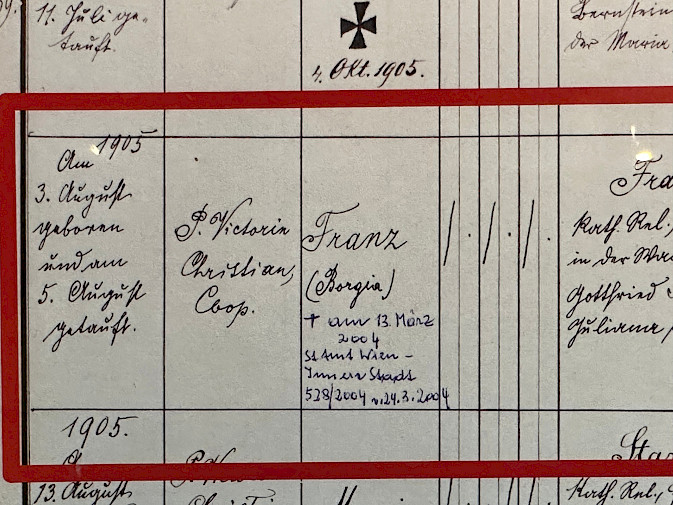 11. Juli ge-
tauft.
4. Okt. 1905.
Bernstein
der Maria
1905
Am
3. August
geboren
und am
5. August
getauft.
P. Victorin
Christian,
Coop.
Franz
(Borgia)
† am 13. März
2004
StAmt Wien -
Innere Stadt
528/2004 v. 24.3.2004
Fra
Kath. Rel.,
in der Wa
Gottfried
Juliana,
1905.
13. August
Christi
Kath. Rel.,